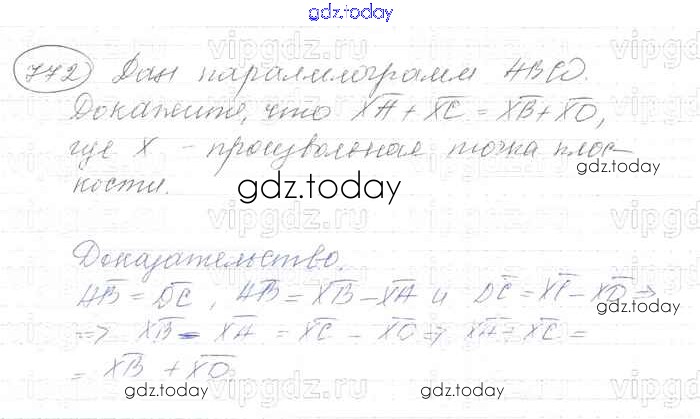 gdz.today
772) Дан параллелограмм ABCD.
Докажите, что XA + XC = XB + XD,
где X - произвольная точка плос-
кости.
gdz.today
Доказательство.
AB = DC, AB = XB - XA и DC = XC - XD =>
gdz.today
=> XB - XA = XC - XD => XA + XC =
= XB + XD
gdz.today gdz.today gdz.today